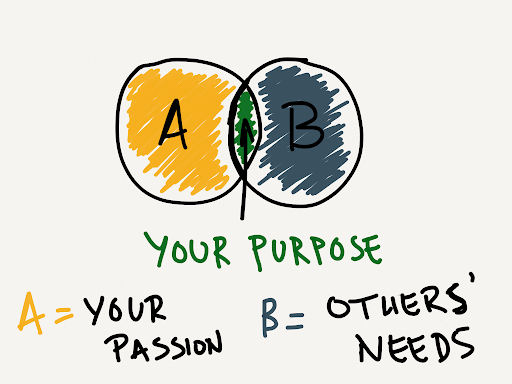 A B
YOUR PURPOSE
A = YOUR PASSION
B = OTHERS' NEEDS